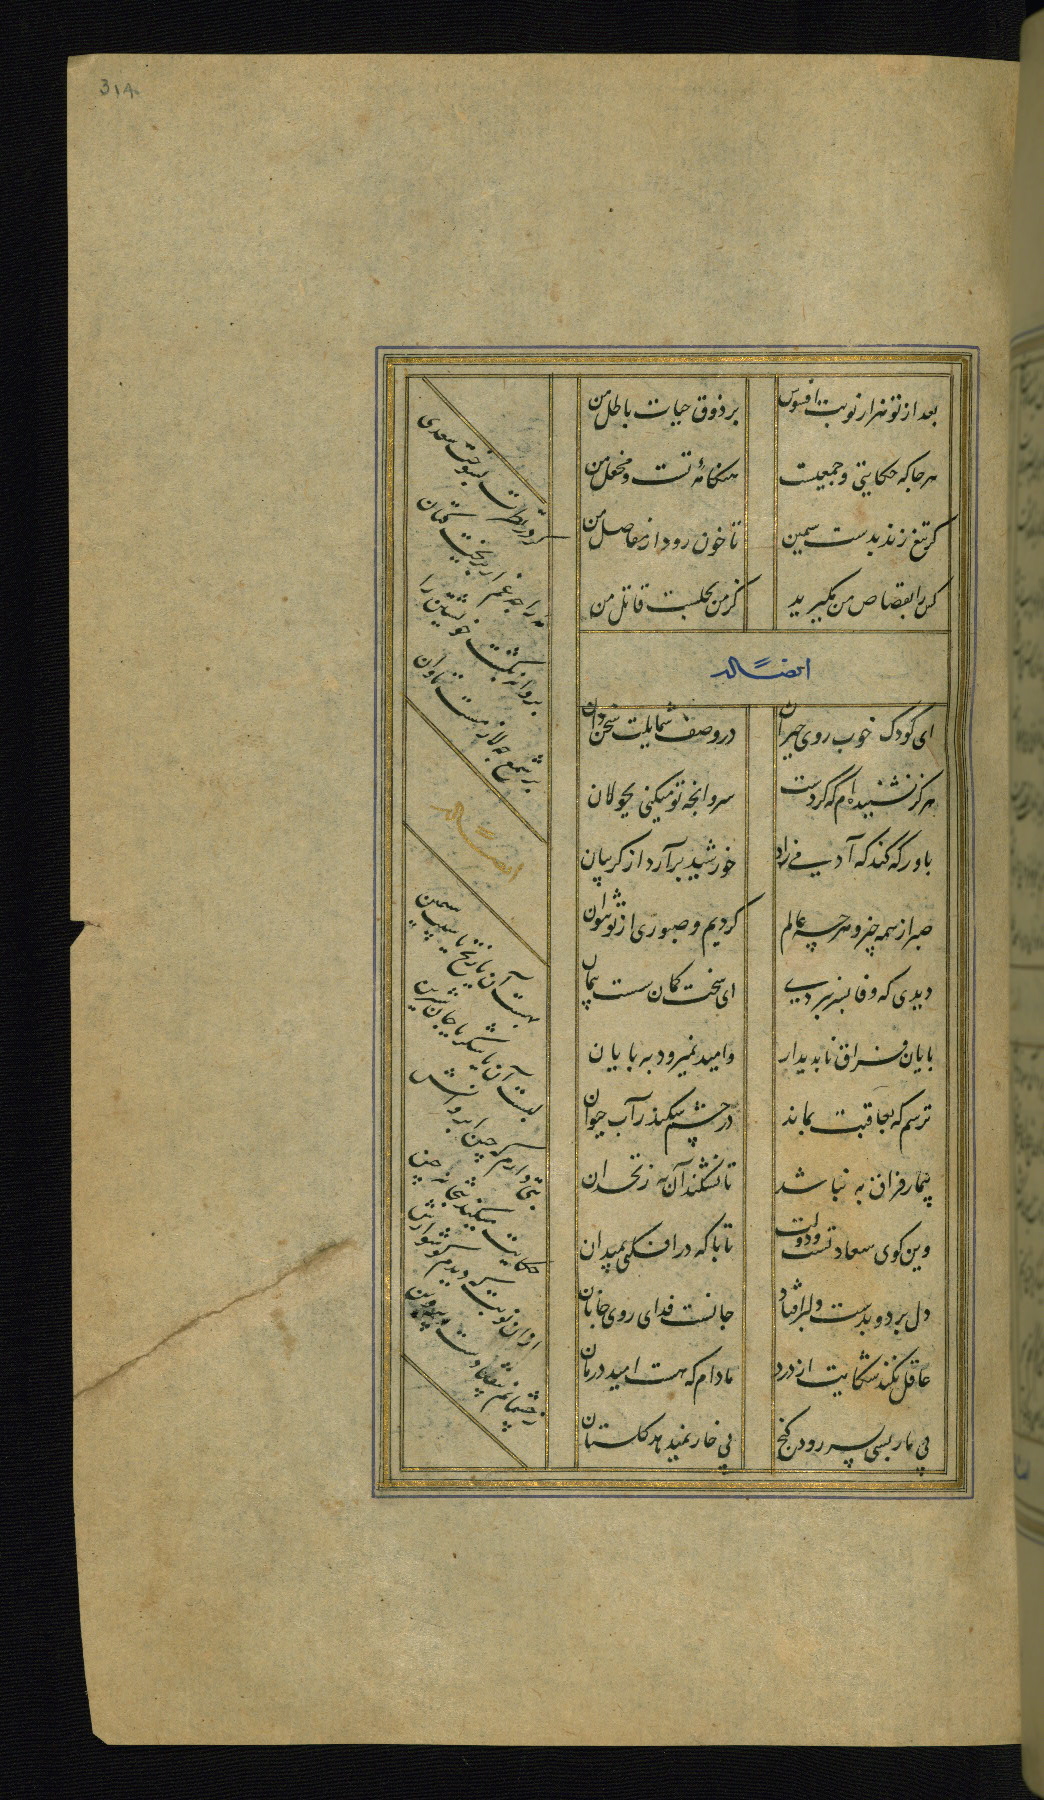 314
بعد از تو هزار نوبت افسوس
بر ذوق حیات باطل من
هر جا که حکایتی و جمعیت
هنگامهٔ تست و محفل من
کر تیغ زند بدست سیمین
تا خون رود از مفاصل من
کس را بقصاص من مکیرید
کز من بحلست قاتل من
ایضاً له
ای کودک خوب روی حیران
در وصف شمایلت سخن دان
هرکز نشنیده‌ام که کردست
سرو انچه تو میکنی بجولان
باور که کند که آدمی زاد
خورشید برآرد از کریبان
صبر از همه چیز و هر چه عالم
کردیم و صبوری از تو نتوان
دیدی که وفا بسر نبردی
ای سخت کمان سست پیمان
پایان فراق ناپدیدار
و امید نمیرود به پایان
ترسم که بعاقبت بماند
در چشم سکندر آب حیوان
بیمار فراق به نباشد
تا نشکند آن به زنخدان
وین کوی سعادتست و دولت
تا با که در افکنی بمیدان
دل برد و بدست دلبر افتاد
جانست فدای روی جانان
عاقل نکند شکایت از درد
مادام که هست امید درمان
بی مار بسی بسر رود کنج
بی خار نمیدهد کلستان
بسوخت سعدی
مه را چه غم ار بریخت کتان
پروانه بکشت خویشتن را
بر شمع چه لازمست تاوان
ایضاً له
بهست آن یا زنخ یا سیب سیمین
لبست آن یا شکر یا جان شیرین
بتی دارم که چین ابروانش
حکایت میکند بتخانه چین
از آن نوبت که دیدم کوشوارش
ز چشمانم بیفتادست پروین